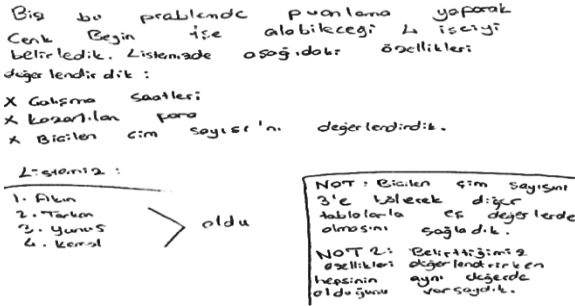 Biz bu problemde puanlama yaparak
Cenk Beyin işe alabileceği 4 işçiyi
belirledik. Listemizde aşağıdaki özellikleri
değerlendirdik :
X Çalışma saatleri
X kazanılan para
X Biçilen çim sayısı'nı değerlendirdik.
Listemiz :
1. Akın
2. Tarkan
3. Yunus
4. Kemal
oldu
NOT : Biçilen çim sayısını
3'e bölerek diğer
tablolarla eş değerlerde
olmasını sağladık.
NOT 2: Belirttiğimiz
özellikleri değerlendirirken
hepsinin aynı değerde
olduğunu varsaydık.